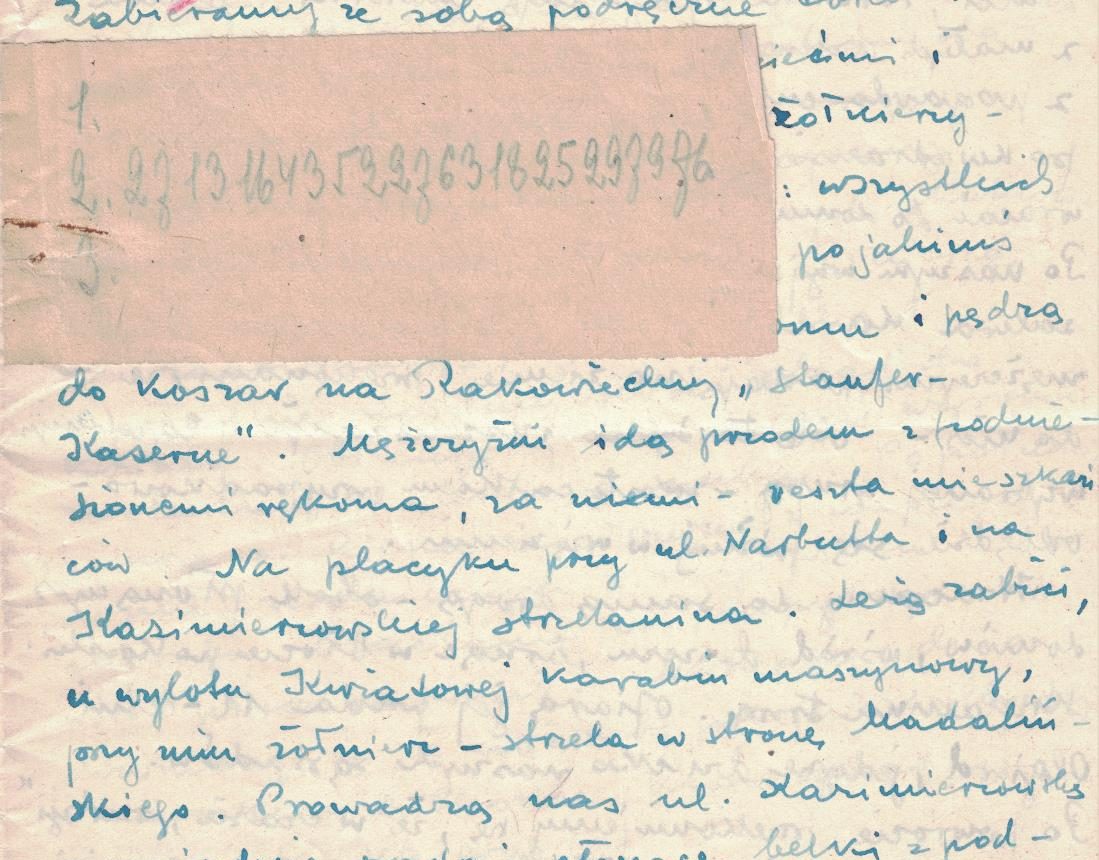 Zabieramy ze sobą podręczne
i
1.
żołnierzy-
2. 27 13 16 43 5 22 27 6 3 18 25 29 3 9 76
: wszystkich
po jakimś
3.
i pędzą
do Koszar na Rakowieckiej „Staufer-
Kaserne". Mężczyźni idą przodem z podnie-
sionemi rękoma, za niemi - reszta mieszkań
ców. Na placyku przy ul. Narbutta i na
Kazimierzowskiej strzelanina. Leżą zabici,
u wylotu Kwiatowej Karabin maszynowy,
przy nim żołnierz - strzela w stronę Madaliń-
skiego. Prowadzą nas ul. Kazimierzowską
belki z pod-